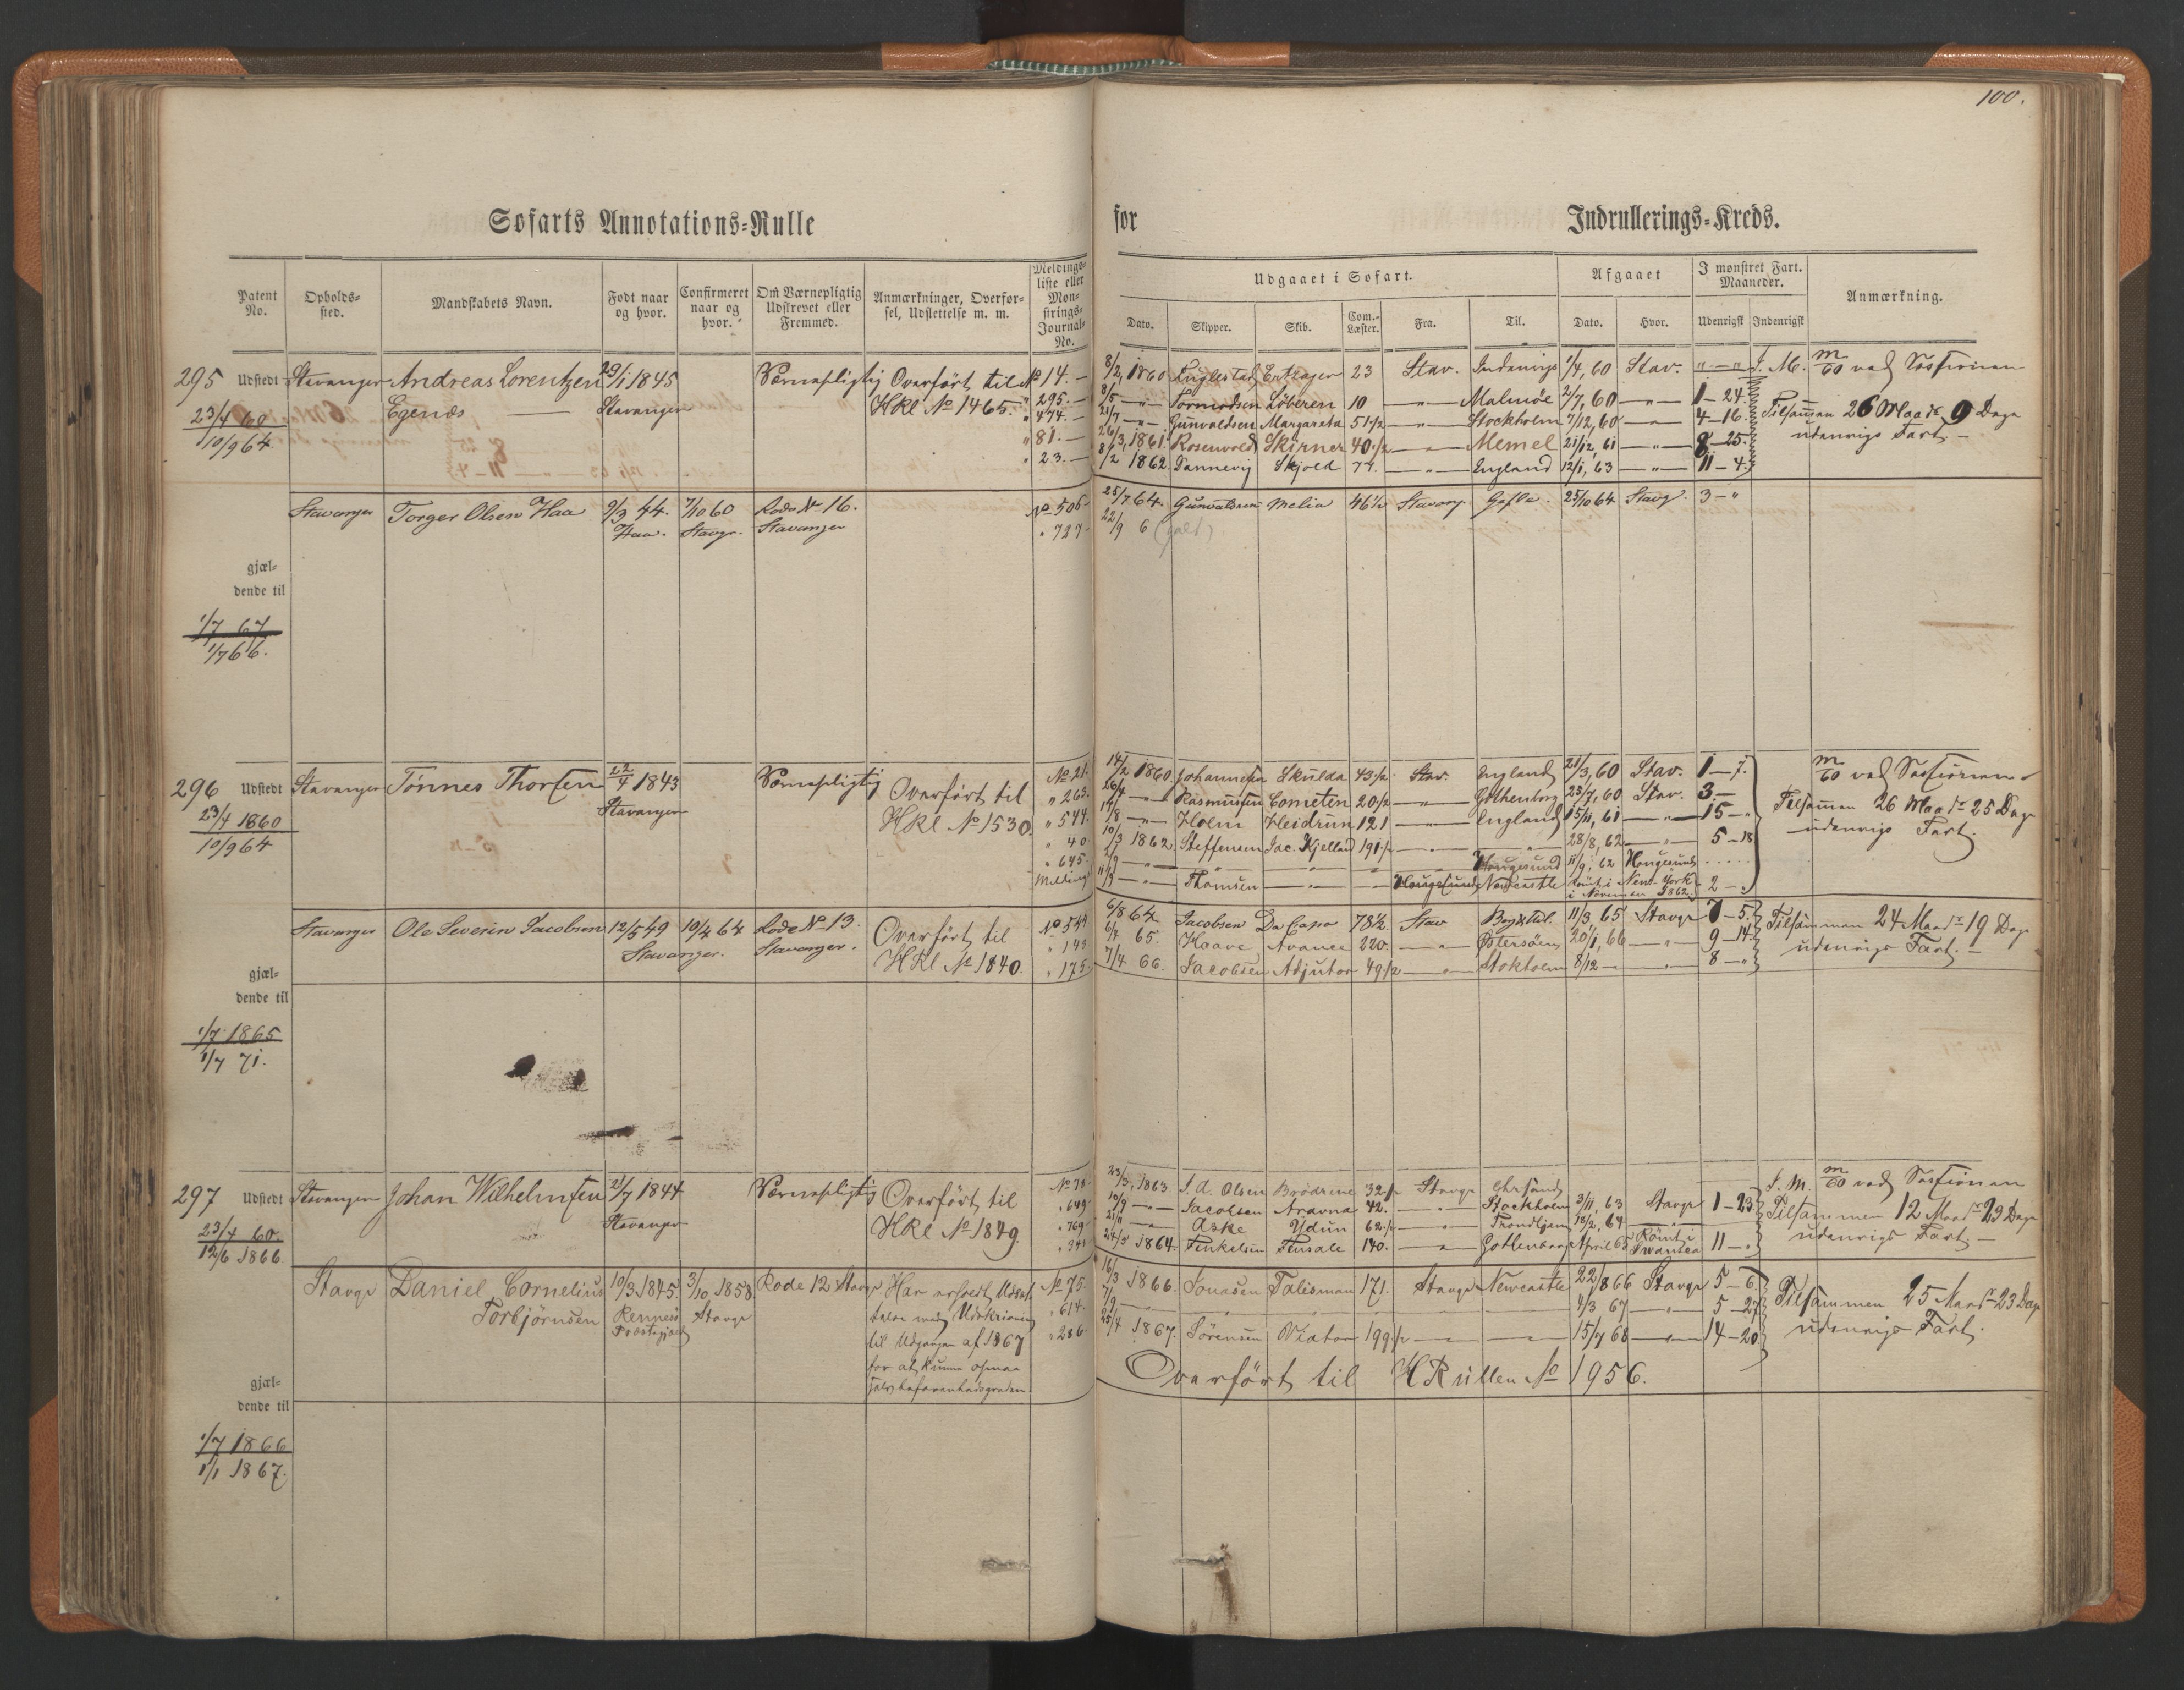 100.
Søfarts Annotations=Rulle for Indrullerings=Kreds.
Patent No.
Opholds=sted.
Mandskabets Navn.
Født naar og hvor.
Confirmeret naar og hvor.
Om Værnepligtig Udskrevet eller Fremmed.
Anmærkninger, Overførsel, Udslettelse m. m.
Meldings=liste eller Mønstrings=Journal=No.
Udgaaet i Søfart.
Dato. Skipper. Skib. Com.=Læster. Fra. Til.
Afgaaet
Dato. Hvor.
I mønstret Fart. Maaneder.
Udenrigsk Indenrigsk
Anmærkning.
295 Udstedt Stavanger Andreas Lorentzen 29/1 1845 Værnepligtig Overført til No 14. 8/2, 1860 Entrager 23 Stav. Indenrigs 1/4, 60 Stav. " — " S. M. m/60 ved Sessionen
23/4 60 Egenæs Stavanger HRl No 1465. " 295. 8/5 — " — Tormodsen Løberen 10 — " — Malmöe 2/7, 60 — " — 1 — 24.
10/9 64. " 474. 21/7 — " — Gunvaldsen Margareta 51 1/2 — " — Stockholm 7/12, 60 — " — 4 — 16. Tilsammen 26 Maad. 9 Dage
" 81. 26/3, 1861 Rosenvold Skirner 40 1/2 — " — Memel 21/12, 61 — " — 8 — 25. udenrigs Fart —
" 23. 8/2 1862 Dannevig Skjold 77. — " — England 12/1, 63 — " — 11 — 4.
Stavanger Torger Olsen Haa 9/3 44. 7/10 60 Rode No 16. No 505 25/7 64. Gunvaldsen Melia 46 1/2 Stavang. Gefle. 25/10 64 Stavgr. 3 — "
Haa. Stavgr. Stavanger " 727 22/9 6 (galt)
gjæl=
dende til
1/7 67
1/7 66.
296 Udstedt Stavanger Tönnes Thorsen 22/4 1843 Værnepligtig Overført til No 21. 14/2 1860 Johannesen Skulda 43 1/2 Stav. England 21/3, 60 Stav. 1 — 7. m/60 ved Sessionen
23/4 1860 Stavanger HRl No 1530. " 263. 26/4 — " — Rasmussen Cometen 20 1/2 — " — Göthenborg 23/7, 60 Stav. 3 — Tilsammen 26 Maadr 25 Dage
10/9 64 " 544. 17/8 — " — Holm Heidrun 121 — " — England 15/11, 61 — " — 15 — " udenrigs Fart.
" 40 10/3 1862 Steffensen Jac. Kjelland 191 1/2 — " — 28/8, 62 — " — 5 — 18
" 645. — " — Hougesund 11/9, 62 Hougesund
Melding 11/9 — " — Thomsen — " — Hougesund Newcastle Römt i New-York 2 — "
i November 1862.
Stavanger Ole Severin Jacobsen 12/5 49 10/4 64 Rode No 13. Overført til No 549 6/8 64 Jacobsen Da Capo 78 1/2 Stav 11/3, 65 Stavgr 7 — 5. Tilsammen 24 Maadr 19 Dage
Stavanger. Stavanger. HRl No 1840. " 143 6/4 65. Kaave Avance 220. — " — Östersöen 20/1, 66 — " — 9 — 14. udenrigs Fart. —
" 175 7/4 66. Jacobsen Adjutor 49 1/2 — " — Stokholm 8/12 — " — 8 — "
gjæl=
dende til
1/7 1865
1/7 71.
297 Udstedt Stavanger Johan Wilhelmsen 21/7 1844 Værnepligtig Overført til No 78. 23/3, 1863. S. A. Olsen Brödrene 32 1/2 Stavgr Chrsand S. M. m/60 ved Sessionen
23/4 60. Stavanger HRl No 1849. " 649 10/9 — " — Jacobsen Aravna 42. — " — Stockholm 3/11, 63 Stavgr 1 — 23. Tilsammen 12 Maadr 23 Dage
12/6 1866. " 769 21/11 — " — Aske Ydun 62 1/2 — " — Trondhjem 18/2, 64 — " — udenrigs Fart. —
" 341 24/5 1864. Finkelsen Finsale 140. — " — Gothenborg April 65 Römt i Swansea 11 — "
Stavgr Daniel Cornelius 10/3 1845. 3/10 1858 Rode 12 Stavgr Har erholdt Udsæt= No 75. 16/3 1866. Jonasen Talisman 171. Stavgr Newcastle 22/8 66 Stavgr 5 — 6. Tilsammen 25 Maadr 23 Dage
Torbjörnsen Rennesö Stavgr telse med Udskrivning " 614. 7/9 — " — 4/3 67 — " — 5 — 27 udenrigs Fart.
Præstegjæld til Udgangen af 1867 " 286. 25/4 1867. Sörensen Viator 199 1/2 — " — 15/7 68 — " — 14 — 20
for at kunne opnaa
Overført til HRullen No 1956.
gjæl=
dende til
1/7 1866
1/1 1867.